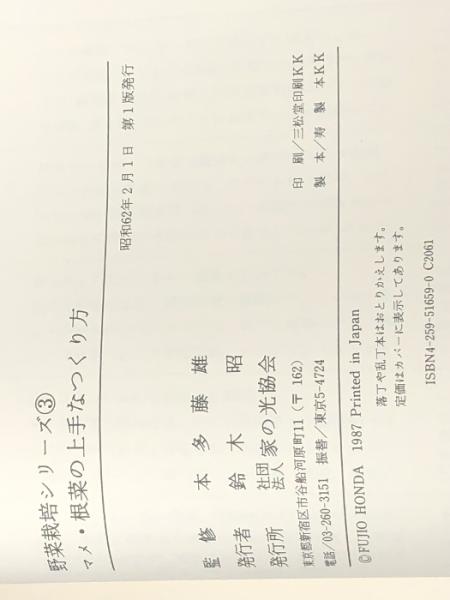 野菜栽培シリーズ③
マメ・根菜の上手なつくり方
昭和62年2月1日 第1版発行
監修 本多藤雄
発行者 鈴木昭
発行所 社団法人 家の光協会
東京都新宿区市谷船河原町11（〒162）
電話/03-260-3151 振替/東京5-4724
印刷/三松堂印刷KK
製本/寿製本KK
©FUJIO HONDA 1987 Printed in Japan
落丁や乱丁本はおとりかえします。
定価はカバーに表示してあります。
ISBN4-259-51659-0 C2061